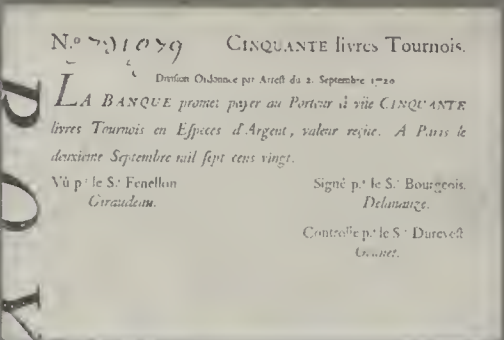 N.º 791079 CINQUANTE livres Tournois.
Division Ordonnée par Arrest du 2. Septembre 1720
LA BANQUE promet payer au Porteur à vüe CINQUANTE
livres Tournois en Especes d'Argent, valeur reçüe. A Paris le
deuxième Septembre mil sept cens vingt.
Vû p.r le S.r Fenellon Signé p.r le S.r Bourgeois.
Giraudeau. Delanauze.
Controllé p.r le S.r Durevest
Granet.